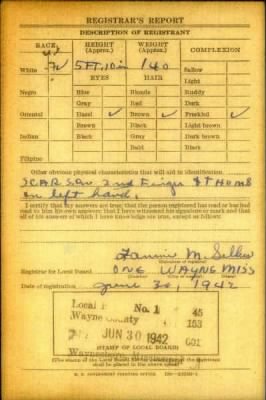 REGISTRAR'S REPORT
DESCRIPTION OF REGISTRANT
RACE HEIGHT (Approx.) WEIGHT (Approx.) COMPLEXION
White ✓ 5 FT, 10 in 140 Sallow
EYES HAIR Light
Negro Blue Blonde Ruddy
Gray Red Dark
Oriental Hazel ✓ Brown ✓ Freckled ✓
Brown Black Light brown
Indian Black Gray Dark brown
Bald Black
Filipino
Other obvious physical characteristics that will aid in identification
SCARS on 2nd Finger & THOMB
on left hand.
I certify that my answers are true; that the person registered has read or has had
read to him his own answers; that I have witnessed his signature or mark and that
all of his answers of which I have knowledge are true, except as follows:
M.
Registrar for Local Board ONE WAYNE MISS
Date of registration June 30, 1942
Local No. 1 45
Wayne County 153
JUN 30 1942 001
(STAMP OF LOCAL BOARD)
(The stamp of the Local Board
shall be placed in the above space)
U. S. GOVERNMENT PRINTING OFFICE